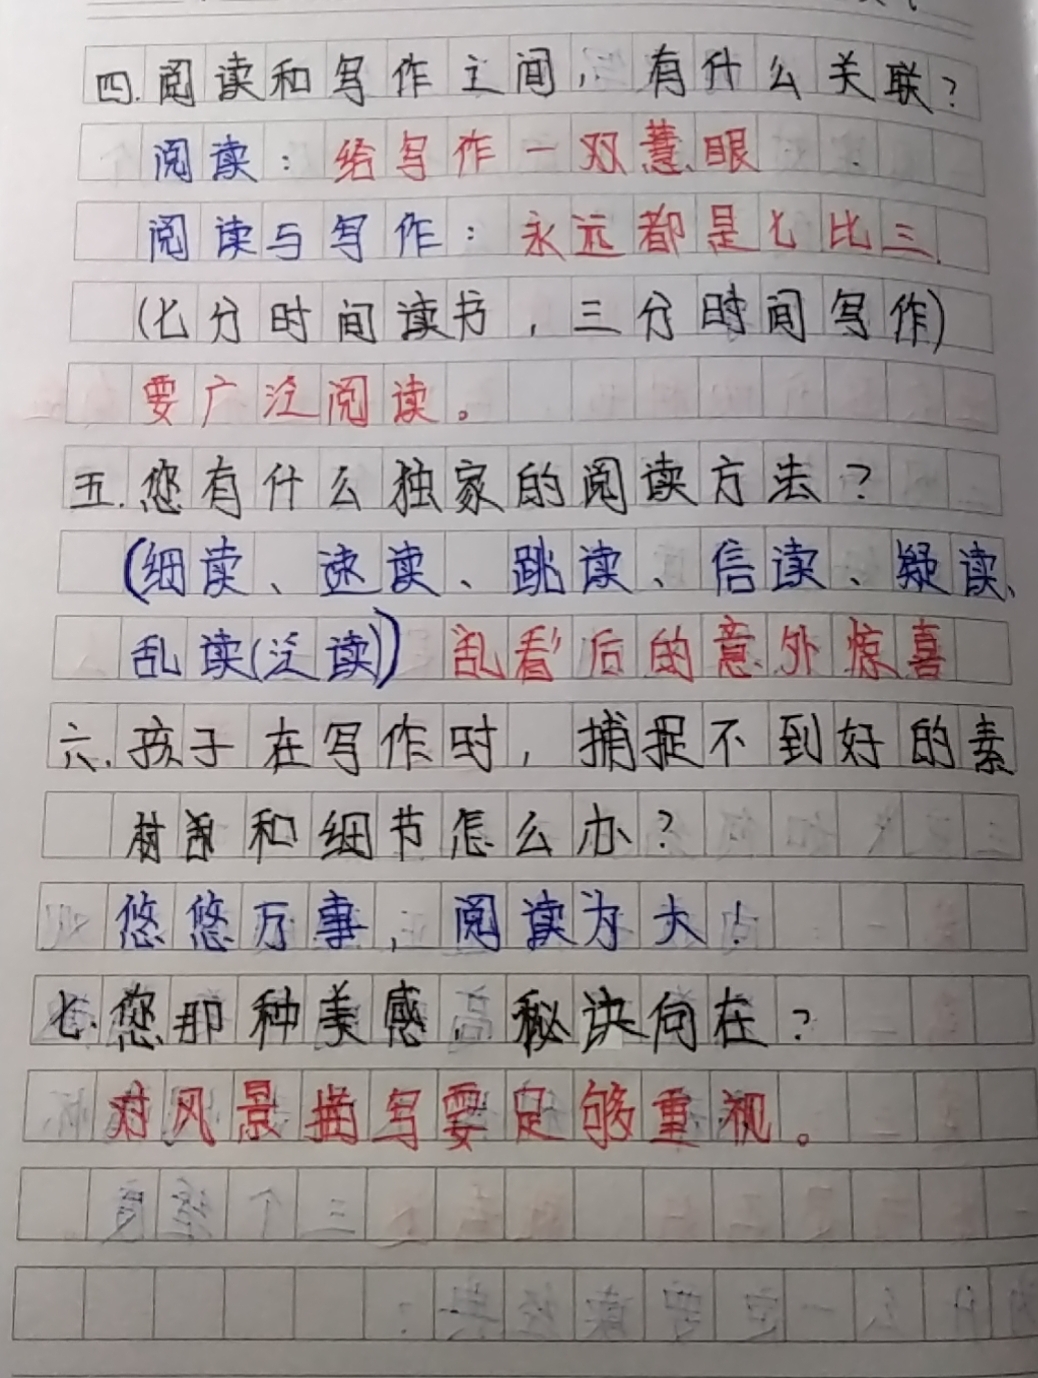 四.阅读和写作之间,有什么关联?
阅读:给写作一双慧眼
阅读与写作:永远都是七比三.
(七分时间读书,三分时间写作)
要广泛阅读。
五.您有什么独家的阅读方法?
(细读、速读、跳读、信读、疑读、
乱读(泛读))乱"看"后的意外惊喜
六.孩子在写作时,捕捉不到好的素
和细节怎么办?
悠悠万事,阅读为大!
七.您那种美感,秘诀何在?
对风景描写要足够重视。